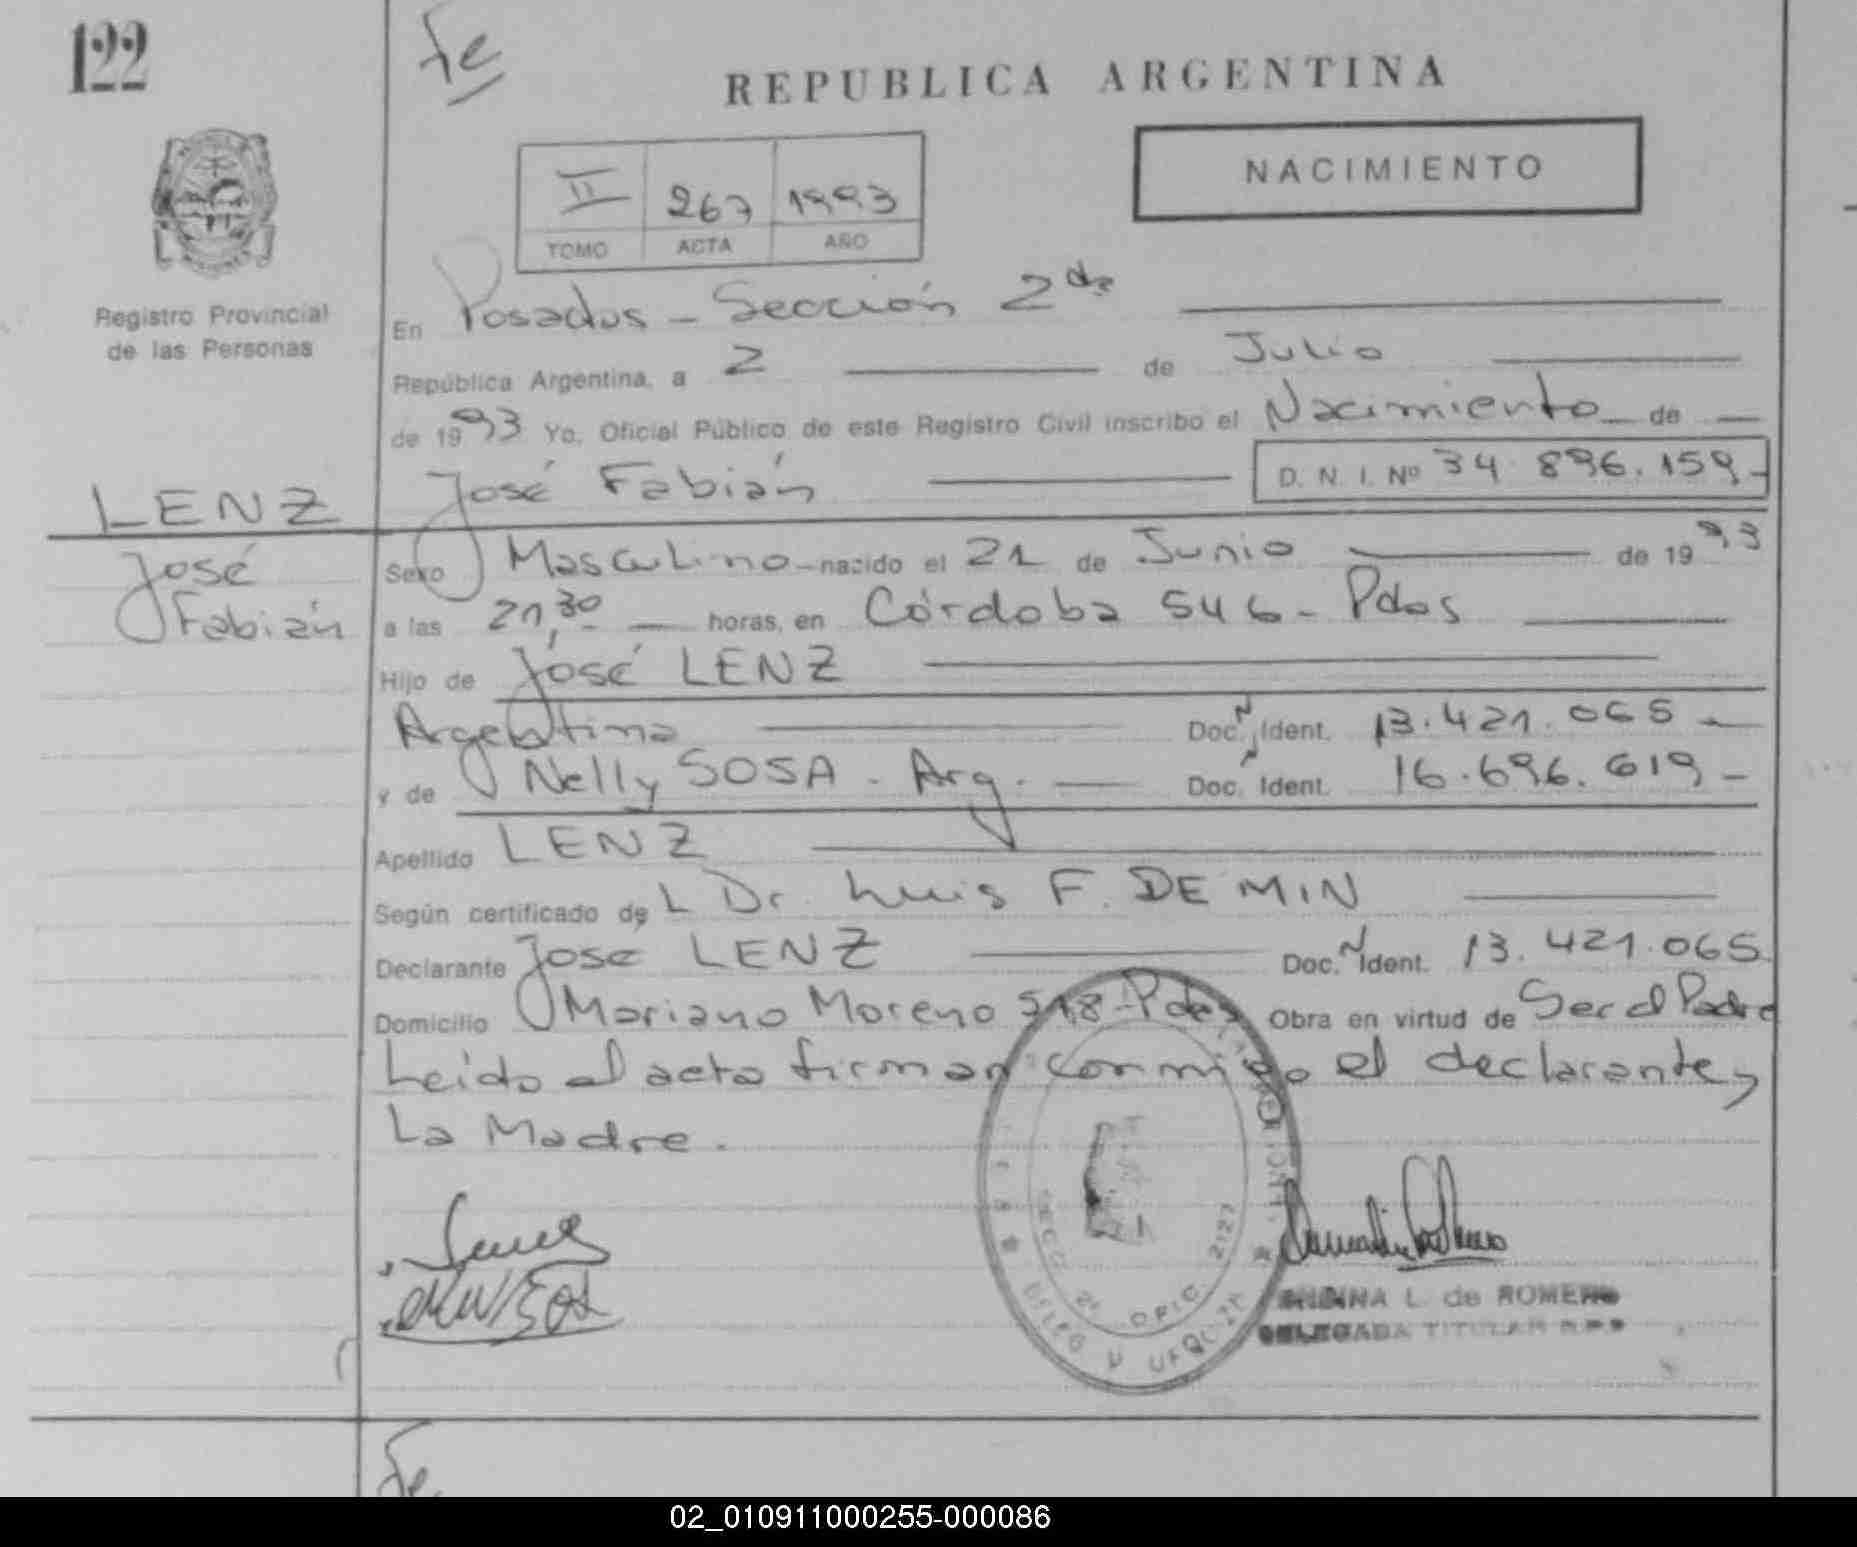 122
Fe
REPUBLICA ARGENTINA
NACIMIENTO
II 267 1993
TOMO ACTA AÑO
Registro Provincial
de las Personas
En Posadas - Sección 2da
República Argentina, a 2 de Julio
de 1993 Yo, Oficial Público de este Registro Civil inscribo el Nacimiento de
José Fabián D. N. I. Nº 34.896.159.-
LENZ
José
Fabián
Sexo Masculino nacido el 21 de Junio de 1993
a las 21,30 horas, en Córdoba 546 - Pdas
Hijo de José LENZ
Argentina Doc. Ident. 13.421.065 -
y de Nelly SOSA - Arg. Doc. Ident. 16.696.619 -
Apellido LENZ
Según certificado del Dr. Luis F. DE MIN
Declarante José LENZ Doc. Ident. 13.421.065
Domicilio Mariano Moreno 518 - Pdas Obra en virtud de Ser el Padre
Leido el acta firman conmigo el declarante y
La Madre.
SECC 2ª OFIC 2127
L. de ROMERO
DELEGADA TITULAR R.P.P
Fe
02_010911000255-000086